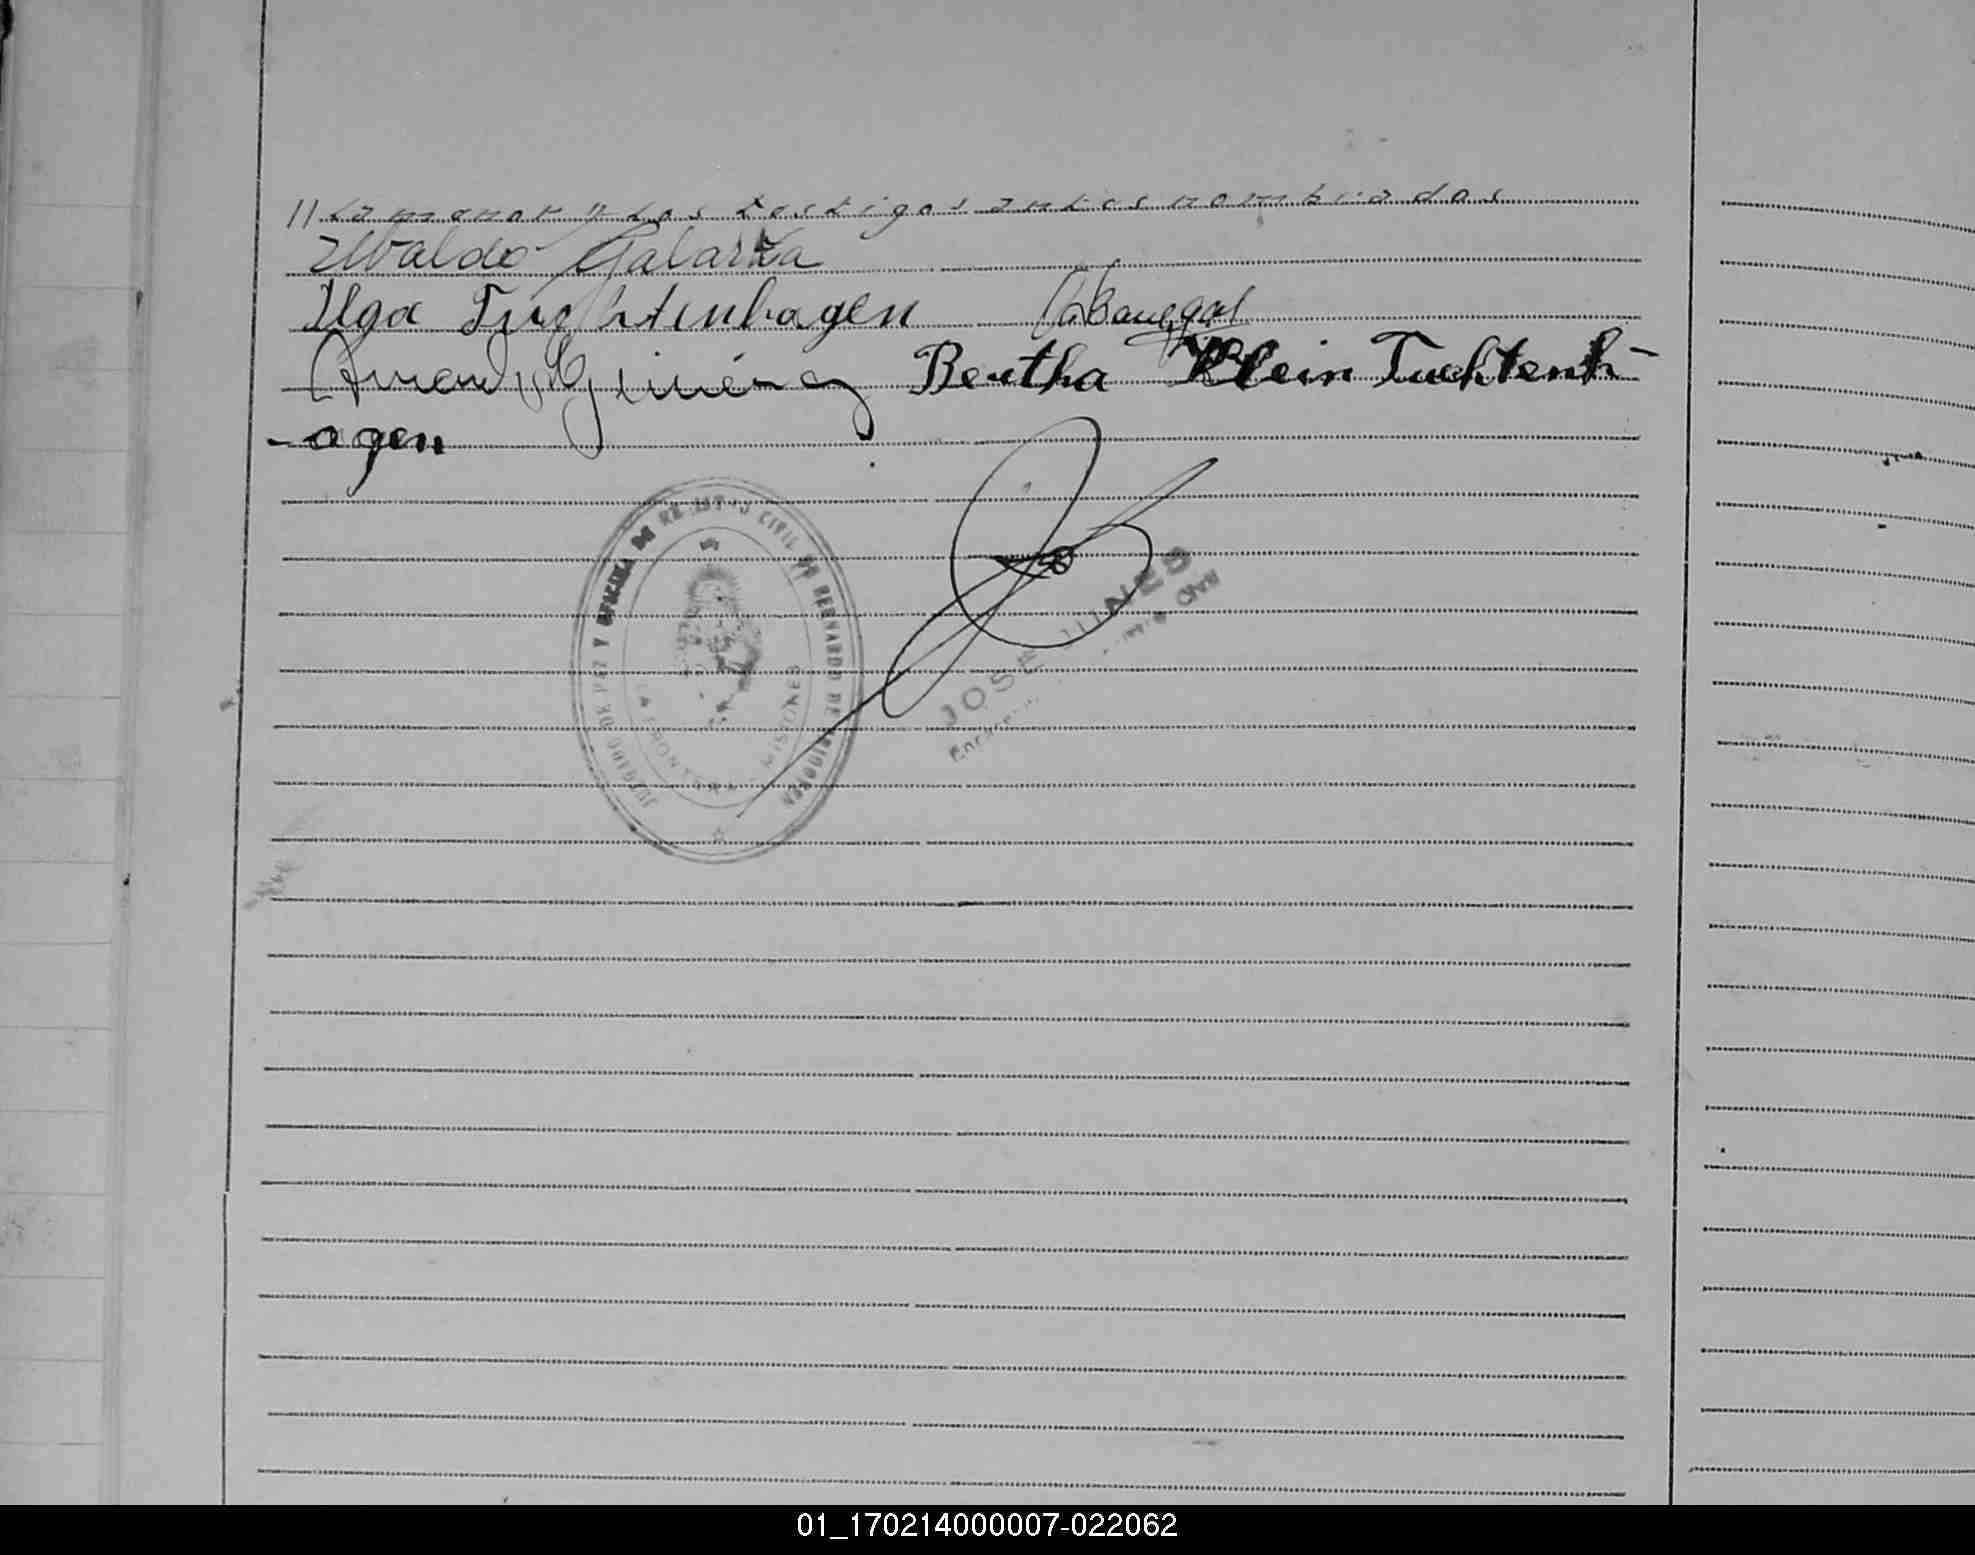 // la menor y los testigos antes nombrados
Ubaldo Galarza
Ilga Tuchtenhagen
Bertha Klein Tuchtenh-
-agen
JUZGADO DE PAZ Y OFICINA DE REGISTRO CIVIL DE BERNARDO DE IRIGOYEN
LA FRONTERA - MISIONES
JOSE
Civil
01_170214000007-022062